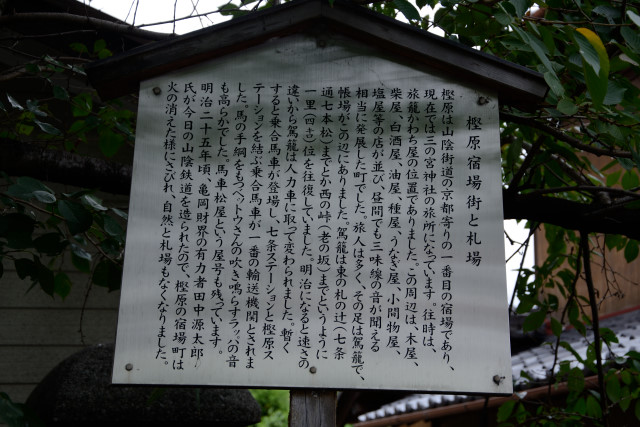 樫原宿場街と札場
樫原は山陰街道の京都寄りの一番目の宿場であり、
現在では三の宮神社の旅所になっています。往時は、
旅籠かわち屋の位置でありました。この周辺は、木屋、
柴屋、白酒屋、油屋、種屋、うなぎ屋、小間物屋、
塩屋等の店が並び、昼間でも三味線の音が聞える
相当に発展した町でした。旅人は多く、その足は駕籠で、
帳場がこの辺にありました。駕籠は東の札の辻(七条
通七本松)までとか西の峠(老の坂)までというように
一里(四㌔)位を往復していました。明治になると速さの
違いから駕籠は人力車に取って変わられました。暫く
すると乗合馬車が登場し、七条ステーションと樫原ス
テーションを結ぶ乗合馬車が一番の輸送機関とされま
した。馬の手綱をもつベットウさんの吹き鳴らすラッパの音
も高らかでした。馬車松屋という屋号も残っています。
明治二十五年頃、亀岡財界の有力者田中源太郎
氏が今日の山陰鉄道を造られたので、樫原の宿場町は
火の消えた様にさびれ、自然と札場もなくなりました。